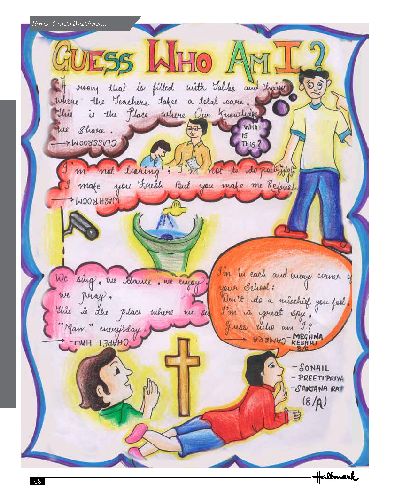 GUESS WHO AM I?
A room that is filled with Tables and
where the Teachers take a total care.
This is the Place where Our Knowledge
we Share.
CLASSROOM
WHO
IS
THIS?
I'm not boring! I'm not to do
I make you fresh But you make me
WASHROOM
We sing, we dance, we enjoy
we pray.
This is the place where we
everyday.
CHAPEL HALL
I'm in each and every corner of
your School!
Don't do a mischief you fool.
I'm a great spy,
Guess who am I?
CAMERA
- MEGHNA
KESHRI
- SONAIL
- PREETI PRIYA
- SANJANA RAJ
(8/A)
Hallmark